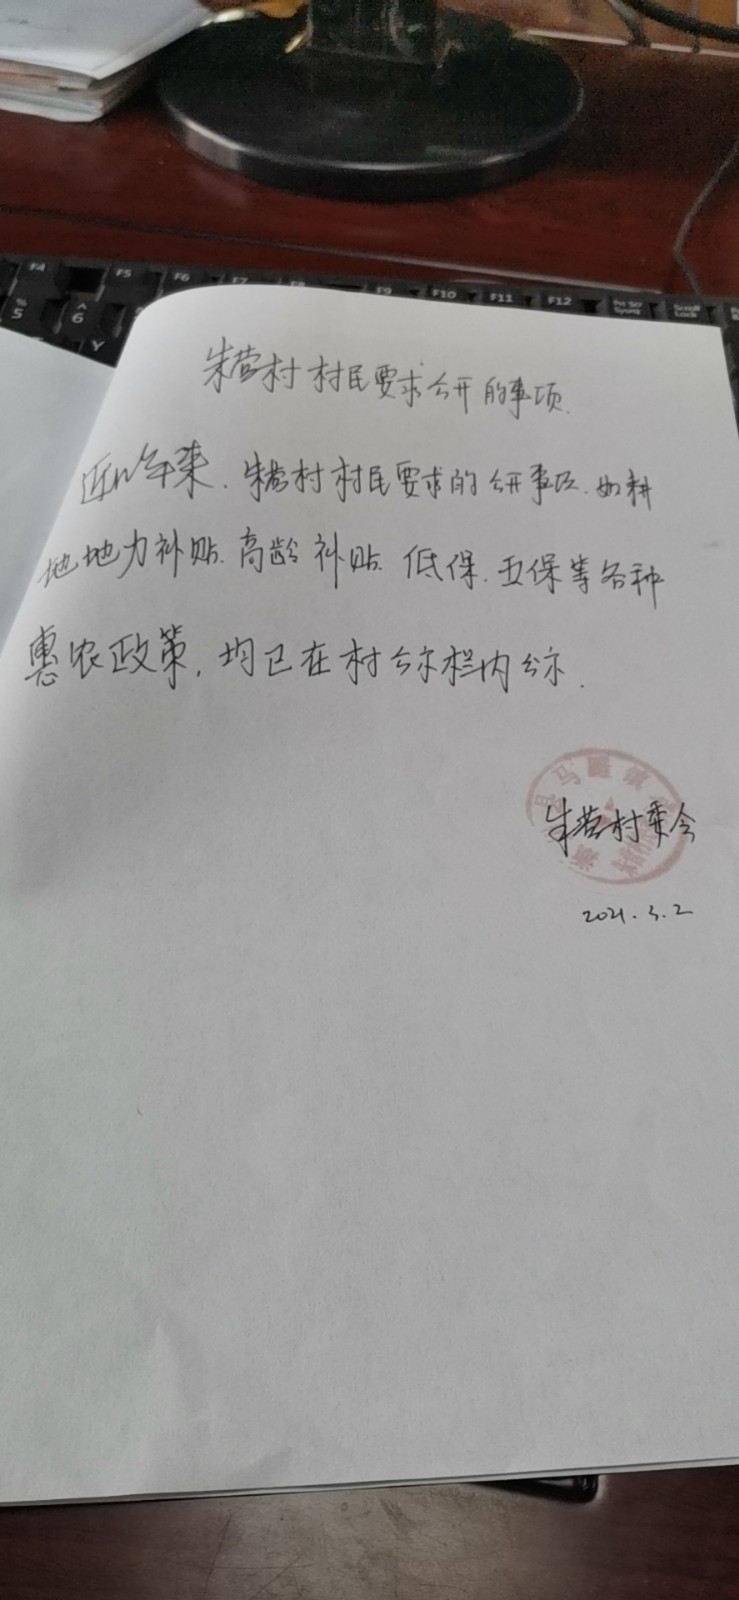 F4 F5 F6 F7 F8 F9 F10 F11 F12 Prt Sc Sysrq Scroll Lock
% 5 ^ 6 Y
朱营村村民要求公开的事项.
近几年来.朱营村村民要求的公开事项.如耕
地地力补贴.高龄补贴.低保.五保等各种
惠农政策,均已在村公示栏内公示.
县马 镇
朱营村委会
2021.3.2